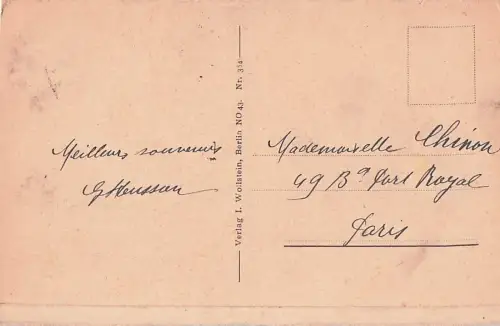 Meilleurs souvenirs
G Heusson
Verlag I. Wollstein, Berlin NO 43. Nr. 354
Mademoiselle Chinon
49 Bd Port Royal
Paris